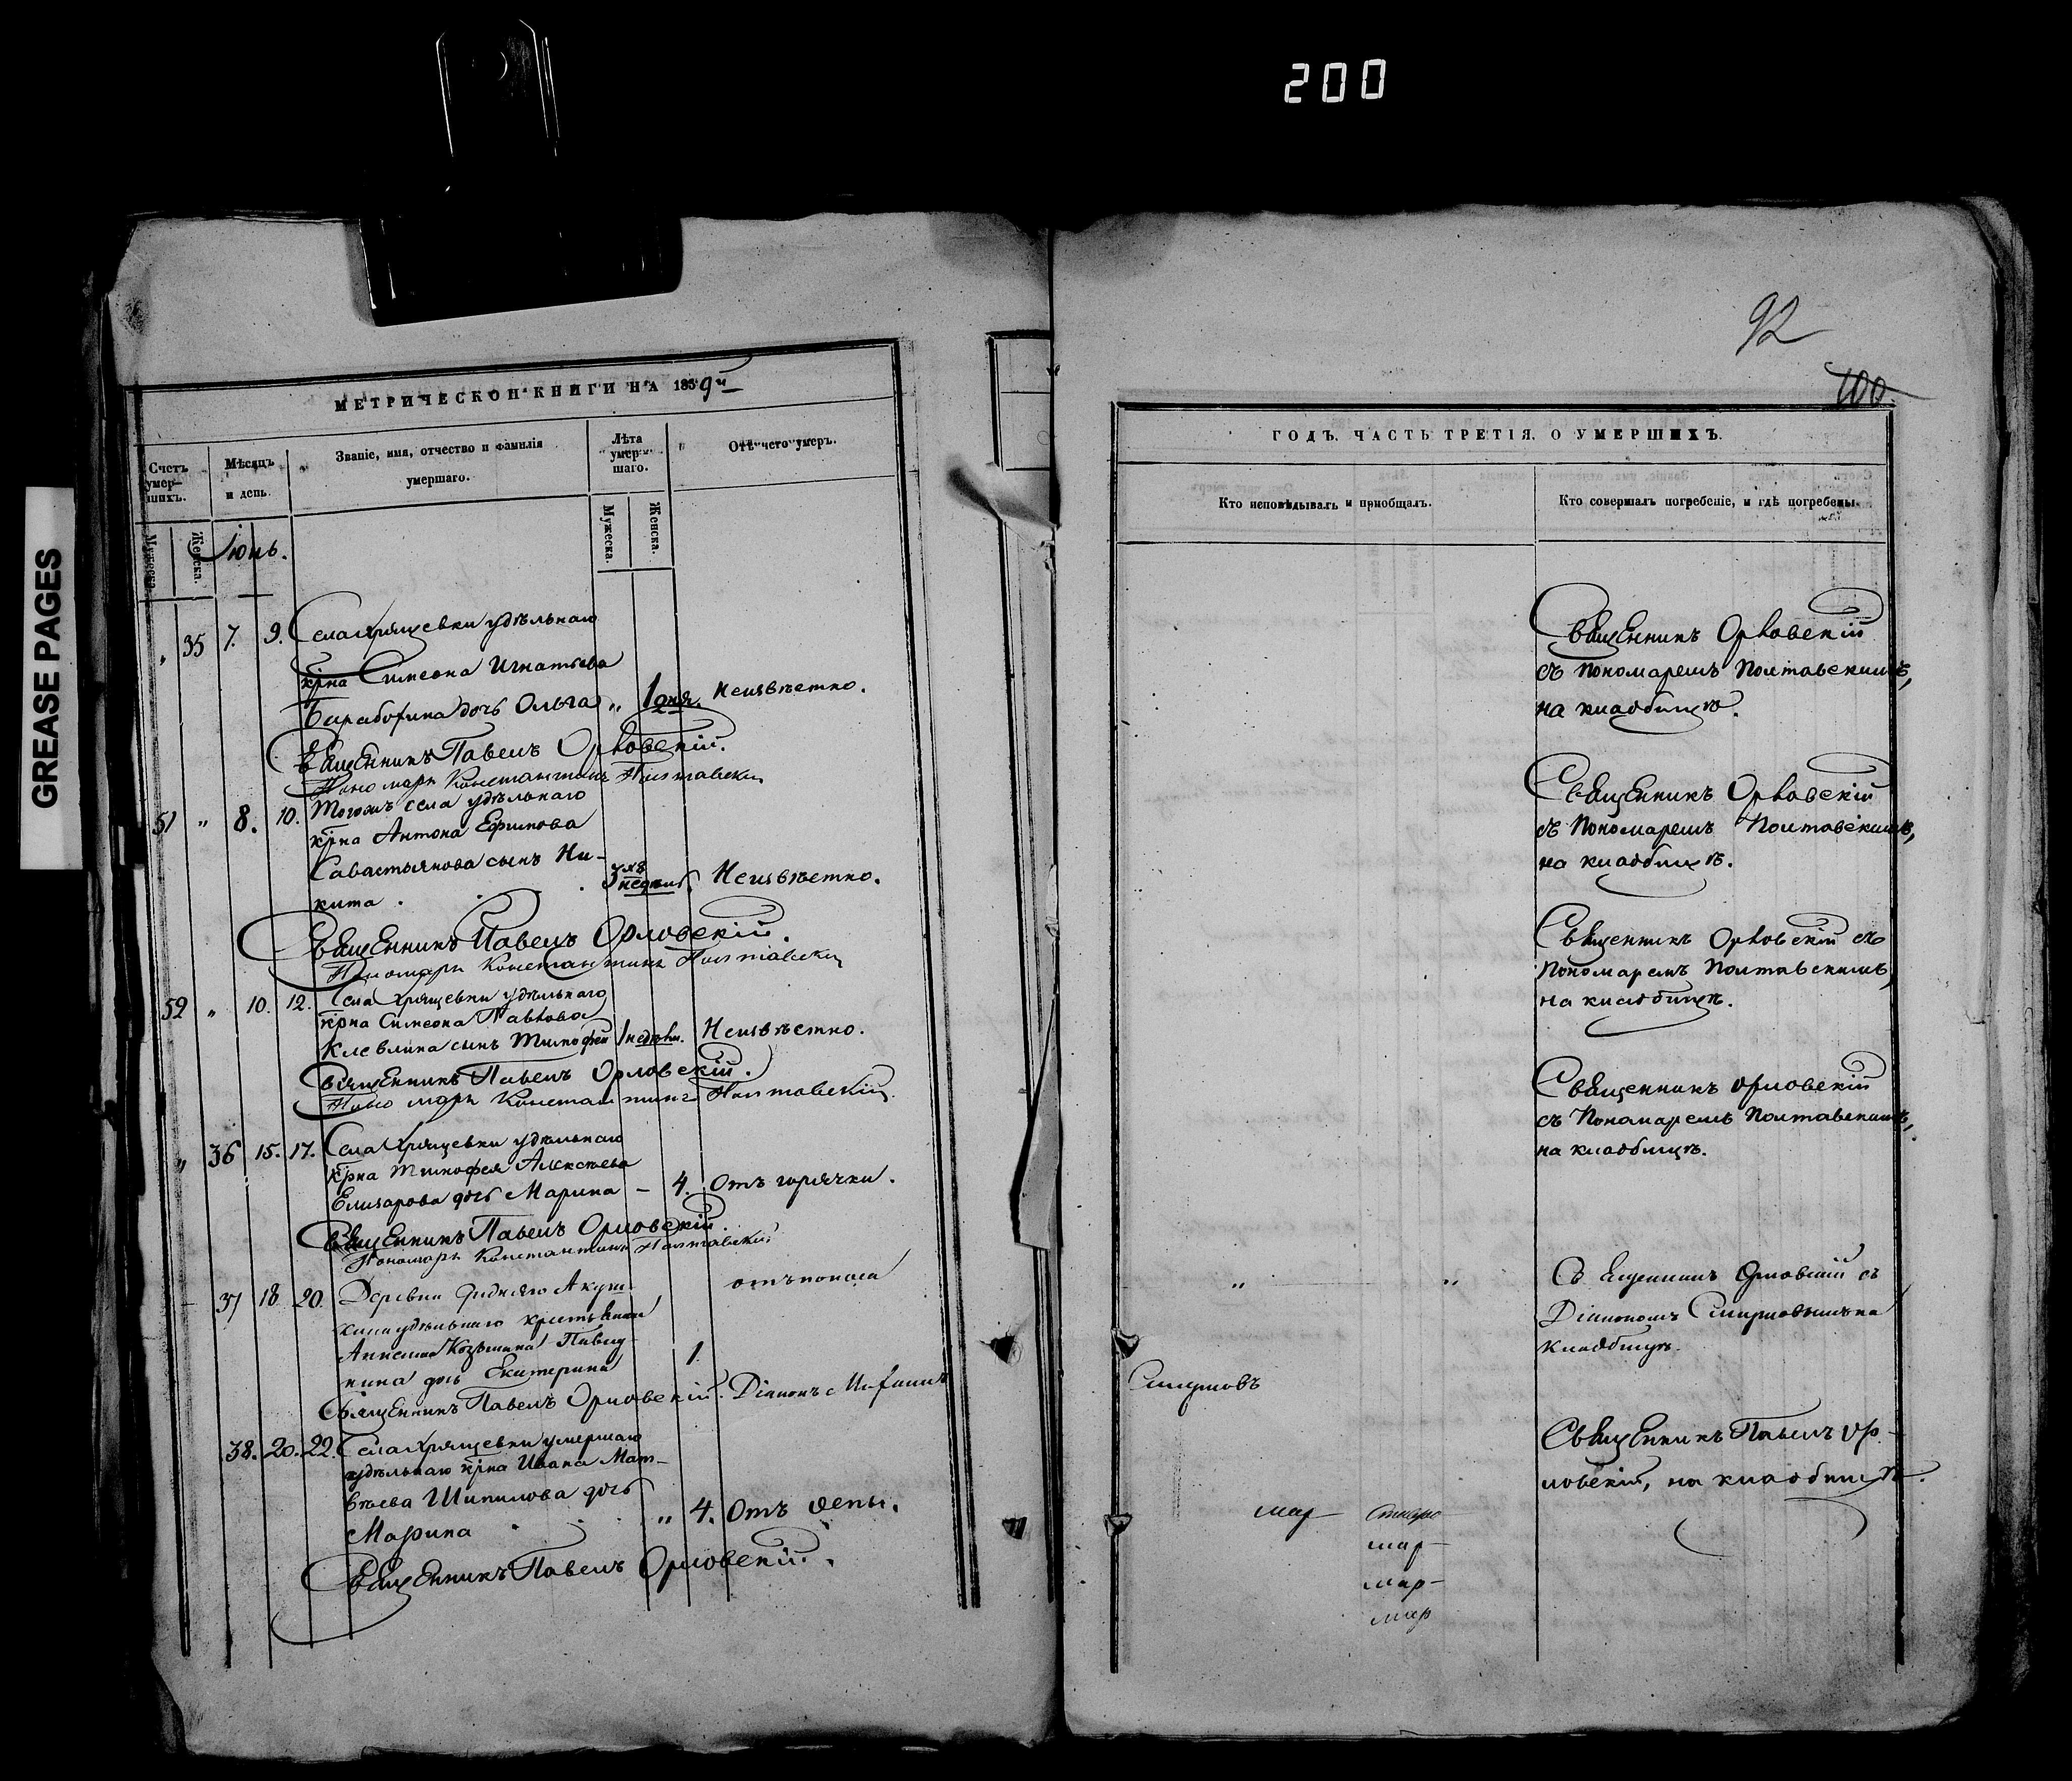 200
GREASE PAGES
92
100
МЕТРИЧЕСКОЙ КНИГИ НА 1859й
Счетъ умер-шихъ.
Мѣсяцъ и день.
Званіе, имя, отчество и фамилія умершаго.
Лѣта умер-шаго.
Отъ чего умеръ.
Мужеска.
Женска.
Мужеска.
Женска.
Іюнь.
„ 35 7. 9. Села Хрящевки удѣльнаго
крна Симеона Игнатьева
дочь Ольга „ 1 дня. Неизвѣстно.
Священникъ Павелъ Орловскій.
Пономарь Константинъ Полтавскій
51 „ 8. 10. Тогожъ села удѣльнаго
крна Антона Ефимова
Савастьянова сынъ Ни-
кита . . . 3 недѣль Неизвѣстно.
Священникъ Павелъ Орловскій.
Пономарь Константинъ Полтавскій
52 „ 10. 12. Села Хрящевки удѣльнаго
крна Симеона Павлова
Клевлина сынъ Тимофей 1 недѣли. Неизвѣстно.
Священникъ Павелъ Орловскій.
Пономарь Константинъ Полтавскій
„ 36 15. 17. Села Хрящевки удѣльнаго
крна Тимофея Алексѣева
Елизарова дочь Марина – 4. Отъ горячки.
Священникъ Павелъ Орловскій.
Пономарь Константинъ Полтавскій
– 37 18 20. Деревни Акуш- отъ поноса
кина удѣльнаго крестьянина
Козьмина
дочь Екатерина 1.
Священникъ Павелъ Орловскій. Діаконъ
38. 20. 22. Села Хрящевки умершаго
удѣльнаго крна Ивана Мат-
вѣева Шипилова дочь
Марина . . „ 4. Отъ оспы.
Священникъ Павелъ Орловскій.
ГОДЪ. ЧАСТЬ ТРЕТІЯ. О УМЕРШИХЪ.
Кто исповѣдывалъ и пріобщалъ.
Кто совершалъ погребеніе, и гдѣ погребены.
Священникъ Орловскій
съ Пономаремъ Полтавскимъ,
на кладбищѣ.
Священникъ Орловскій
съ Пономаремъ Полтавскимъ,
на кладбищѣ.
Священникъ Орловскій съ
Пономаремъ Полтавскимъ,
на кладбищѣ.
Священникъ Орловскій
съ Пономаремъ Полтавскимъ,
на кладбищѣ.
„ „ Священникъ Орловскій съ
Діакономъ Смирновымъ на
кладбищѣ.
Смирновъ
Священникъ Павелъ Ор-
ловскій, на кладбищѣ.
мар
мар-
мар-
мар